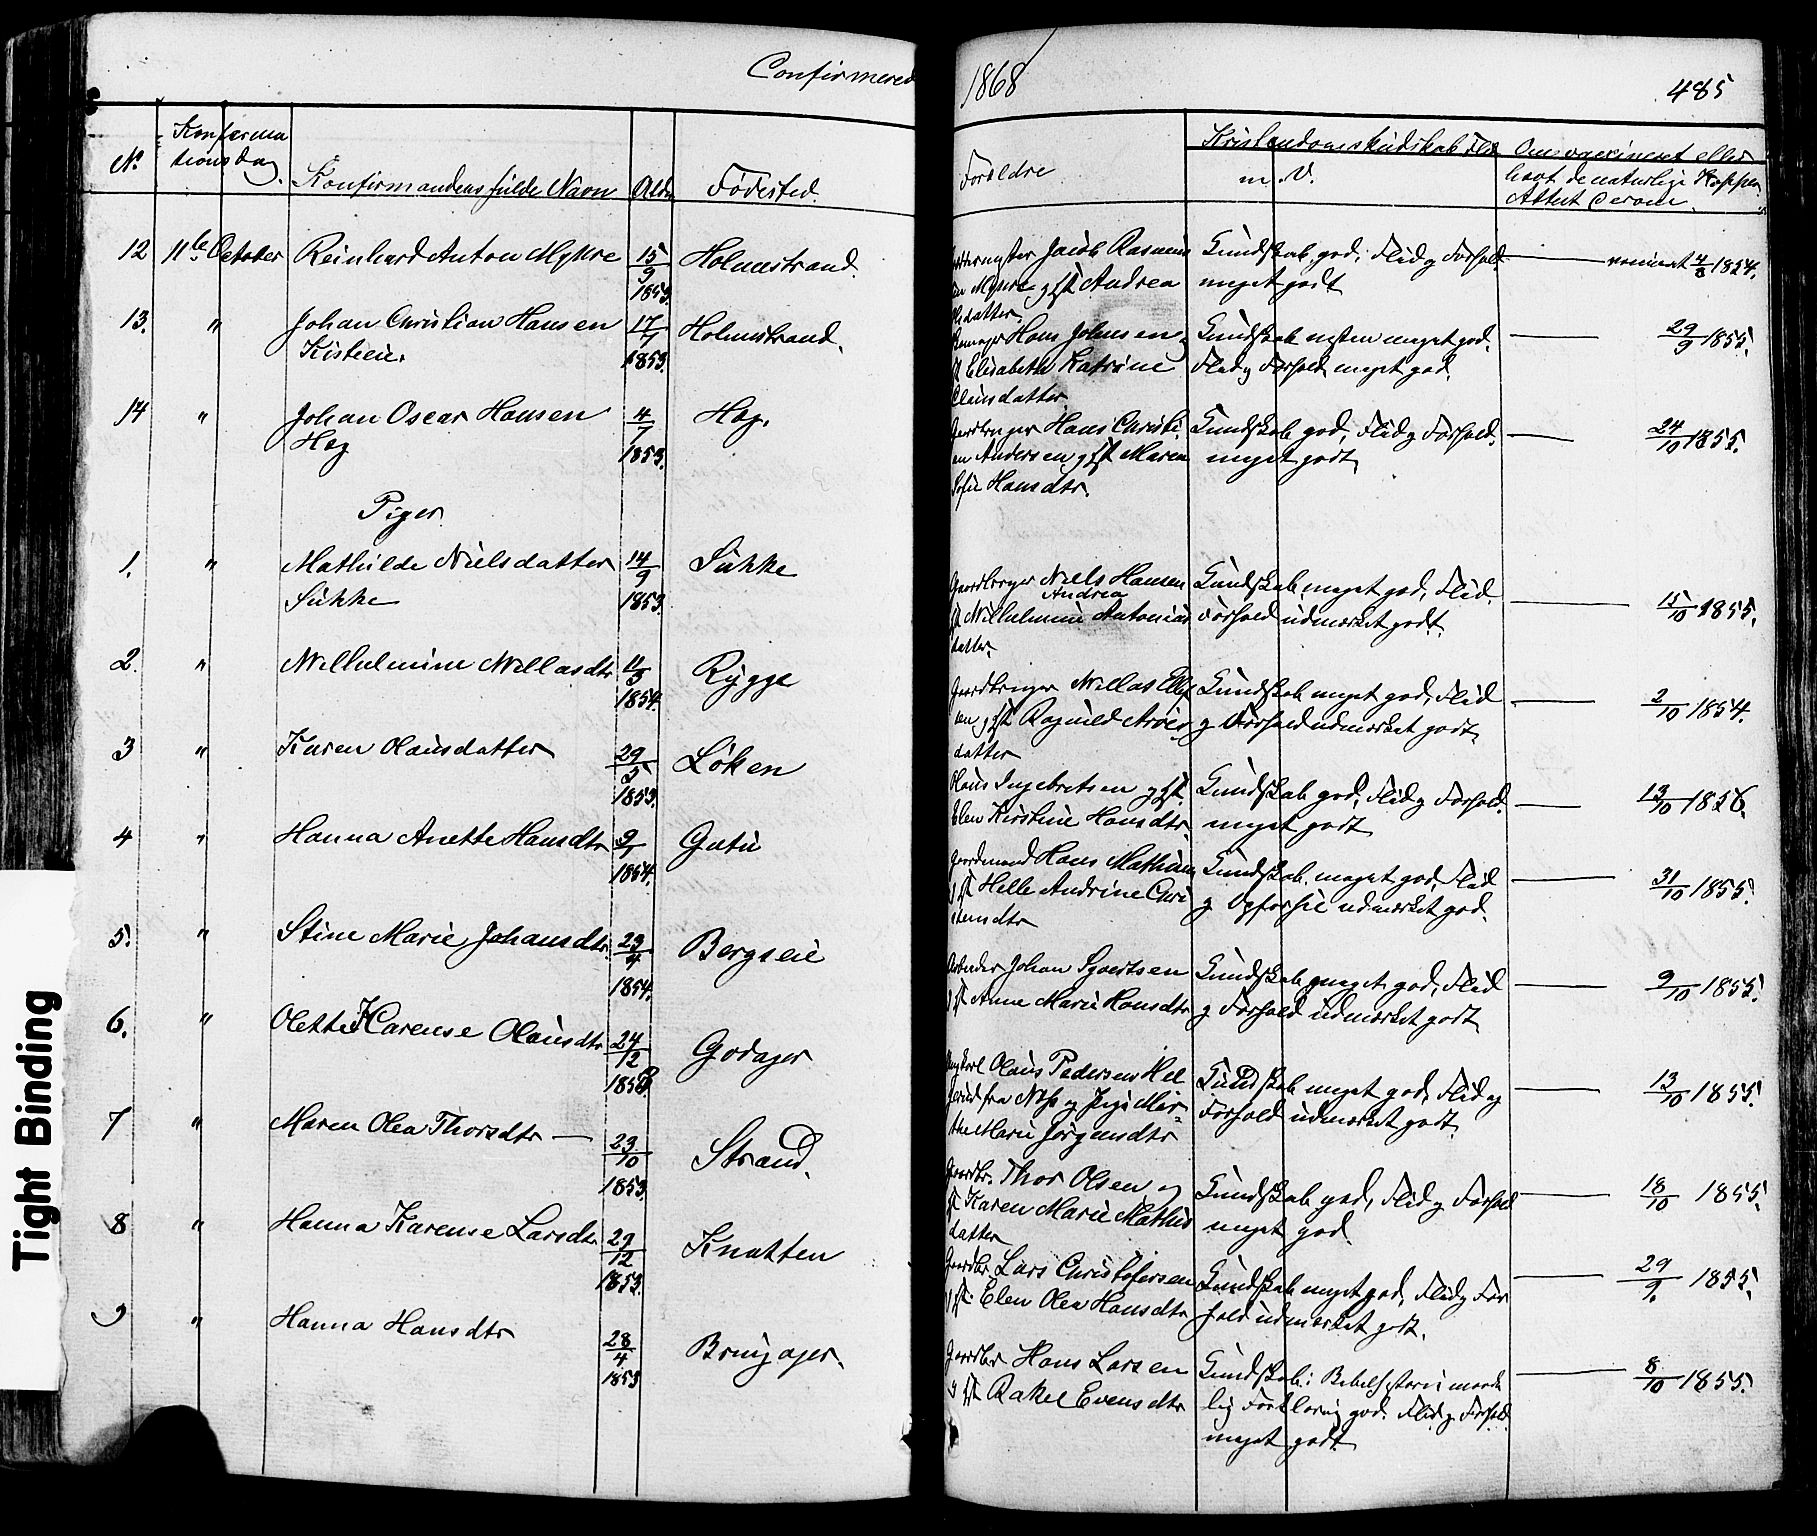 Confirmered
1868
485
No.
Konfirma
tionsdag.
Konfirmandens fulde Navn
Alder
Fødested.
Forældre
Kristendomskundskab Flid
m. V.
Om vaccineret eller
havt de naturlige Kopper
Attest derom.
12 11te October Reinhard Anton Myhre 15/9 1853. Holmestrand.
Jacob Rasmus
Myhre og H. Andrea
datter.
Kundskab god, Flid og Forhold
meget godt
vaccineret 4/8 1854.
13. " Johan Christian Hansen 17/7 1853. Holmestrand.
Hans Johnsen
H. Elisabeth Katrine
Clausdatter
Kundskab næsten meget god.
Flid og Forhold meget god.
29/9 1855.
14 " Johan Oscar Hansen
Hog
4/7 1853. Hog.
Gaardbruger Hans Christi
an Andersen og H. Maren
Sofie Hansdtr.
Kundskab god, Flid og Forhold
meget godt
24/10 1855.
Piger
1. " Mathilde Nielsdatter
Sukke
14/9 1853. Sukke
Gaardbruger Niels Hansen
Andrea
H. Wilhelmine Antonius
datter.
Kundskab meget god, Flid.
Forhold udmærket godt.
15/10 1855.
2. " Wilhelmine Nillasdtr 11/3 1854. Rygge
Gaardbruger Nillas Ellef
sen og H. Ragnild
datter
Kundskab meget god, Flid
og Forhold udmærket godt.
2/10 1854.
3 " Karen Olausdatter 29/5 1853. Løken
Olaus Ingebretsen og H.
Elen Kirstine Hansdtr.
Kundskab god, Flid og Forhold
meget godt
13/10 1856.
4 " Hanna Anette Hansdtr 9/1 1854. Gutu
Gaardmand Hans Mathisen
og H. Helle Andrine Chri
stensdtr
Kundskab meget god, Flid
og Opførsel udmærket god.
31/10 1855.
5. " Stine Marie Johansdtr. 23/4 1854. Bergseie
Arbeider Johan Syvertsen
og H. Anne Marie Hansdtr
Kundskab meget god, Flid
og Forhold udmærket godt
9/10 1855.
6. " Olette Karense Olausdtr 24/12 1853. Godager
Ungkarl Olaus Pedersen Hel
gerud fra og Pige Mar
the Marie Jørgensdtr
Kundskab meget god, Flid og
Forhold udmærket godt.
13/10 1855.
7 " Maren Olea Thorsdtr — 23/10 1853. Strand.
Gaardbr. Thor Olsen og
H. Karen Marie Mathis
datter
Kundskab god, Flid og Forhold
meget god.
18/10 1855.
8 " Hanna Karense Larsdtr 29/12 1853. Knatten
Gaardbr. Lars Christofersen
og H. Elen Olea Hansdtr
Kundskab meget god, Flid og For
hold udmærket godt.
29/9. 1855.
9 " Hanna Hansdtr 28/4 1853
Gaardbr Hans Larsen
og H. Rakel Evensdtr
Kundskab i Bibelhistorie maade
lig Forklaring god. Flid og Forhold
meget godt
8/10 1855.
Tight Binding